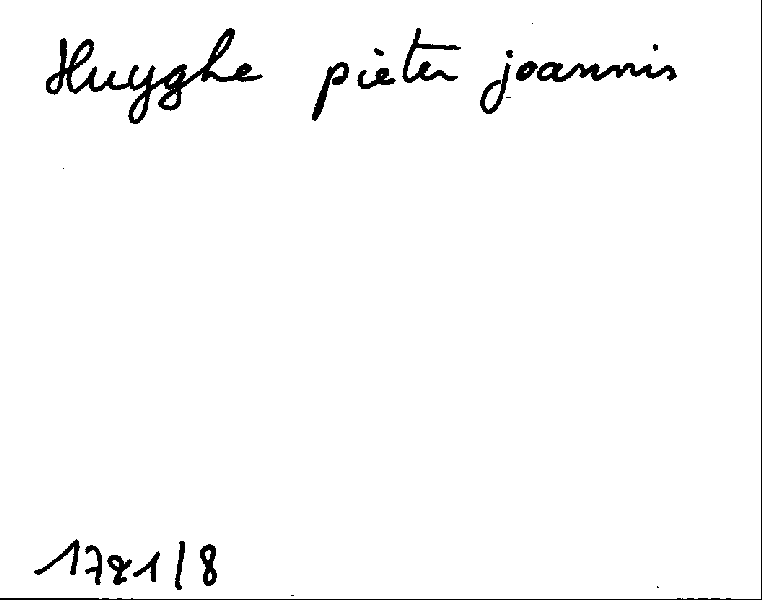 Huyghe pieter joannis
1721/8